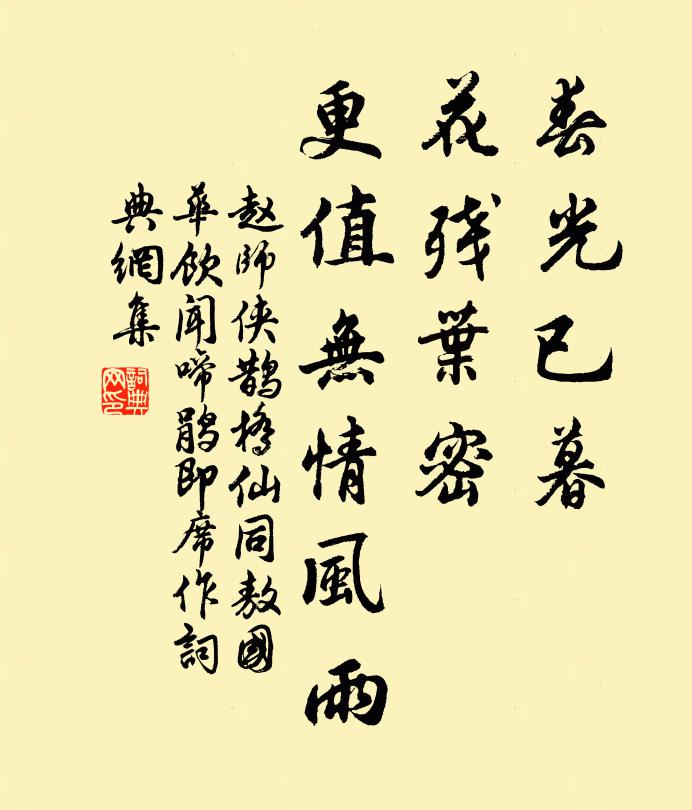 春光已暮
花残葉密
更值無情風雨
赵師侠鵲橋仙同敖國
華飲闻啼鹃即席作詞
典網集
詞典
网印